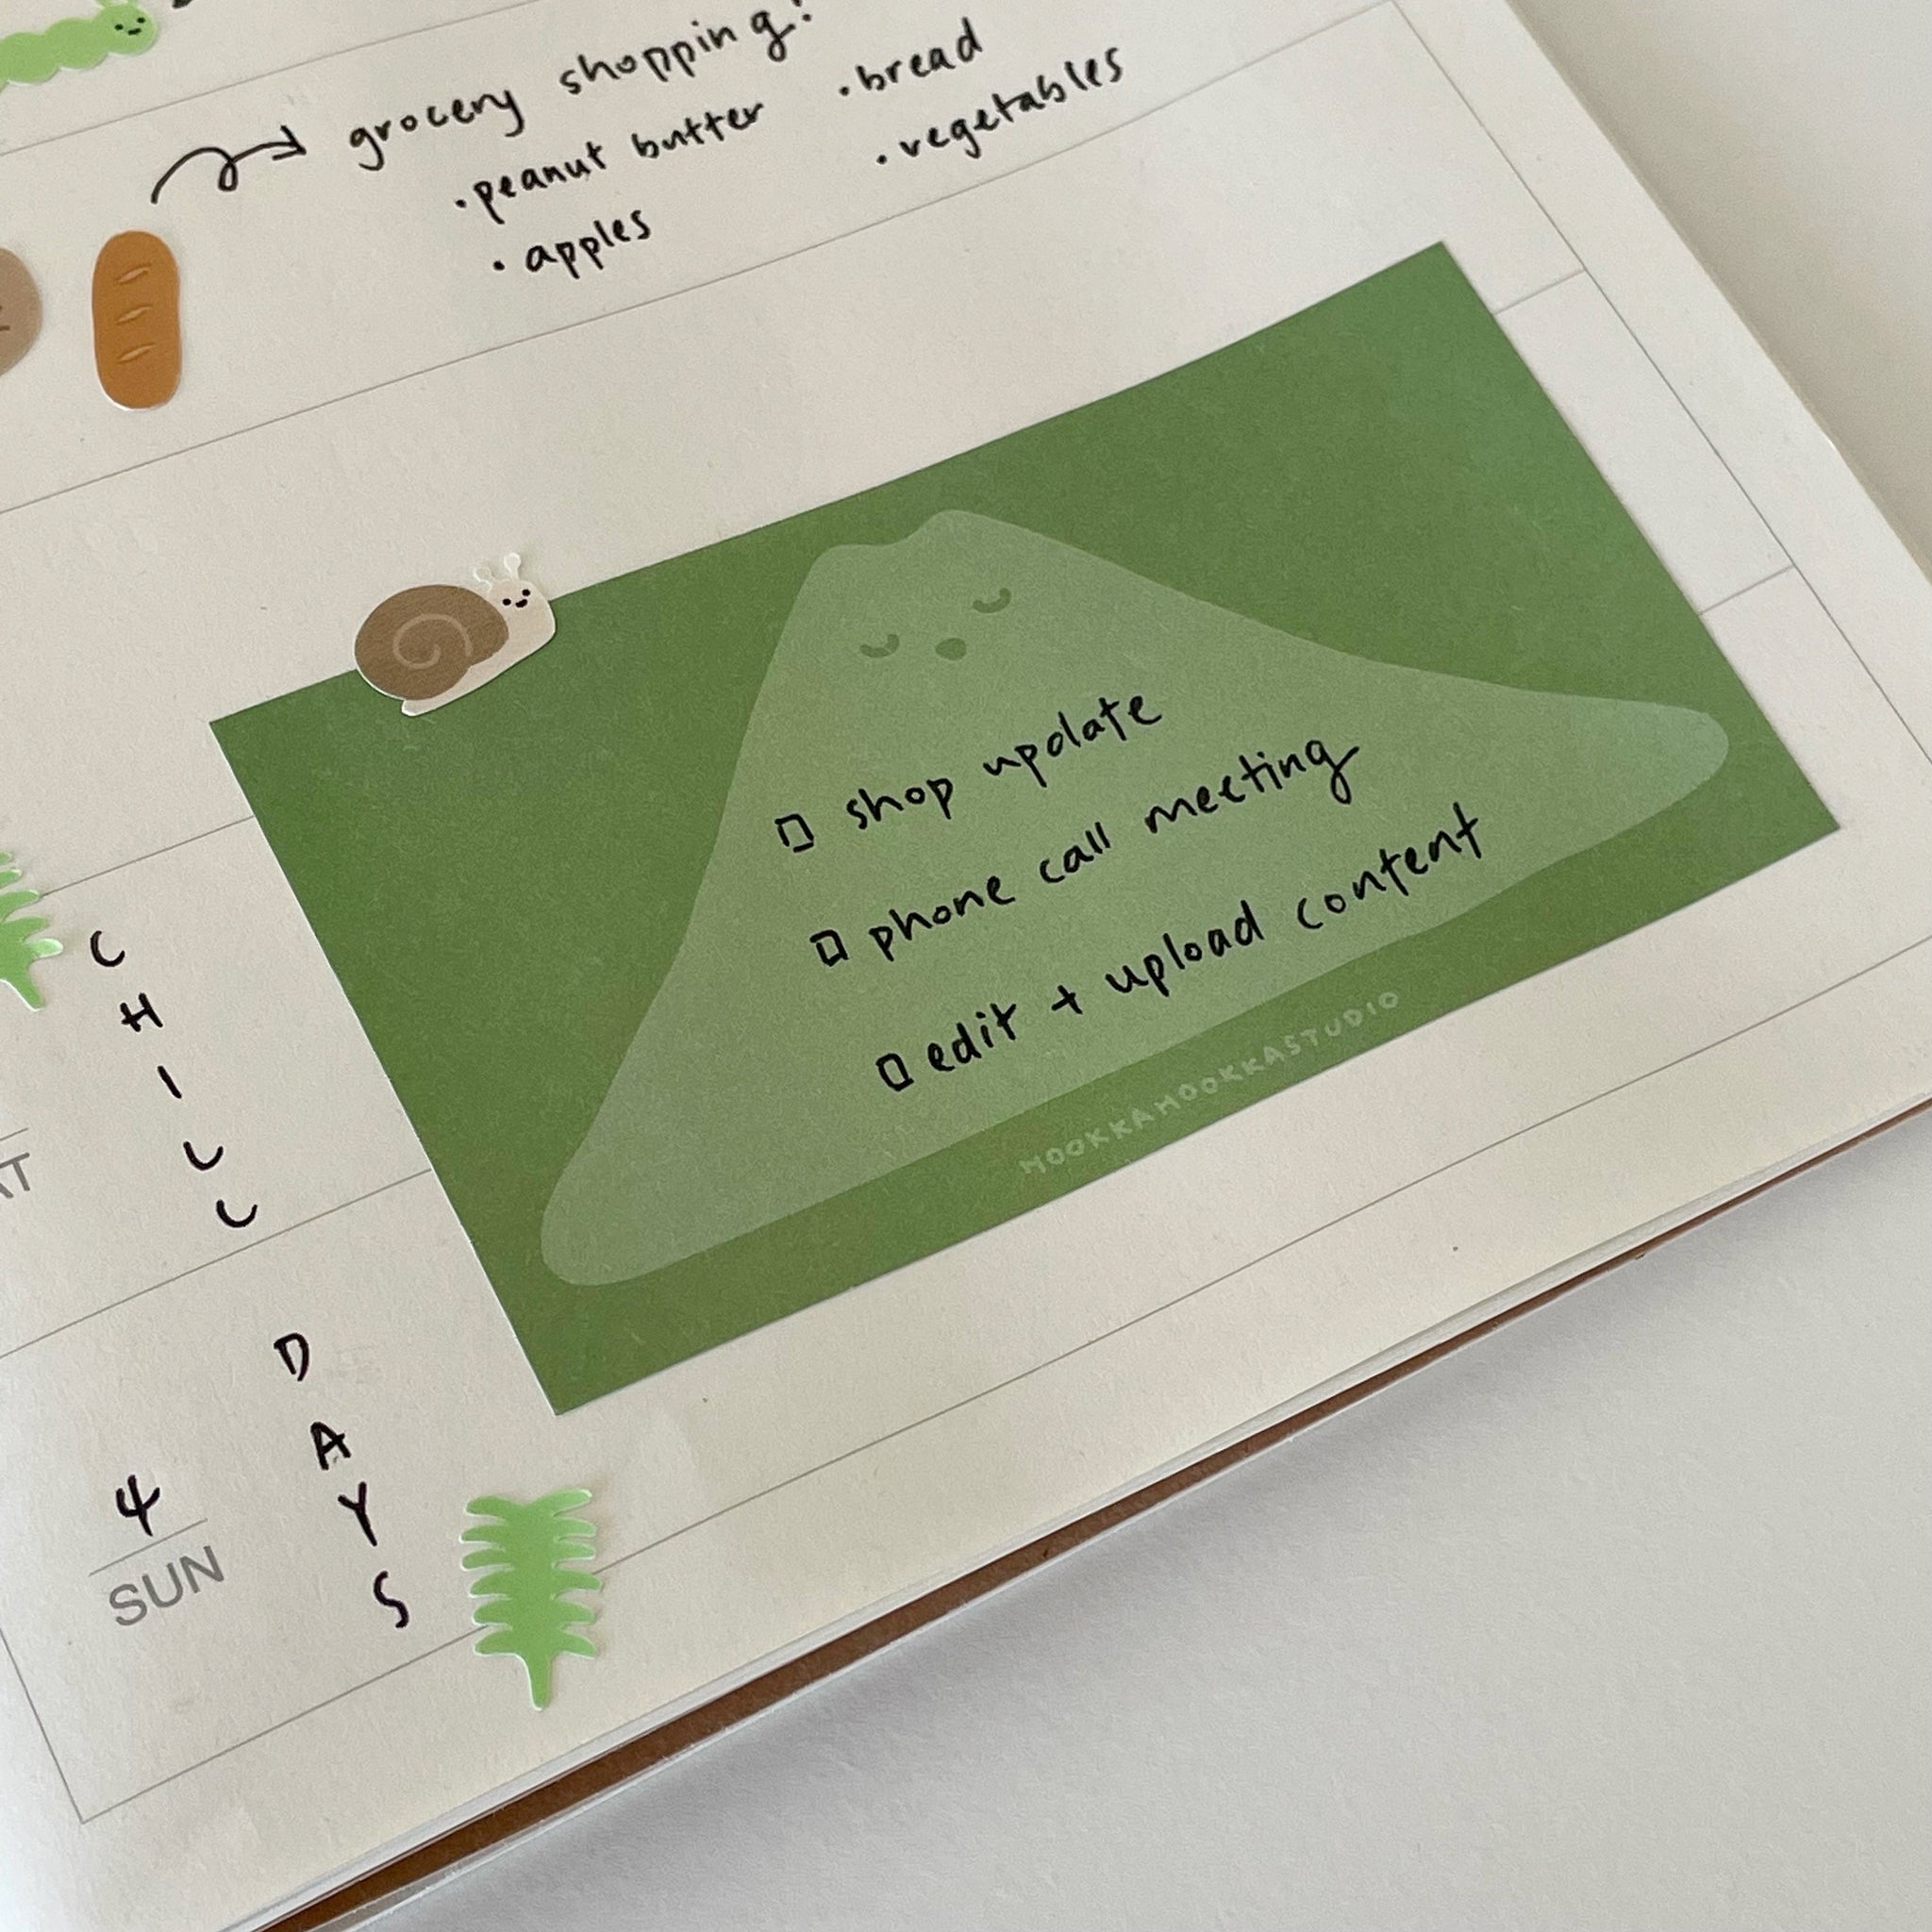 grocery shopping!
• peanut butter
• bread
• apples
• vegetables
☐ shop update
☐ phone call meeting
☐ edit + upload content
HOOKKAHOOKKASTUDIO
C
H
I
L
L
D
A
Y
S
4
SUN